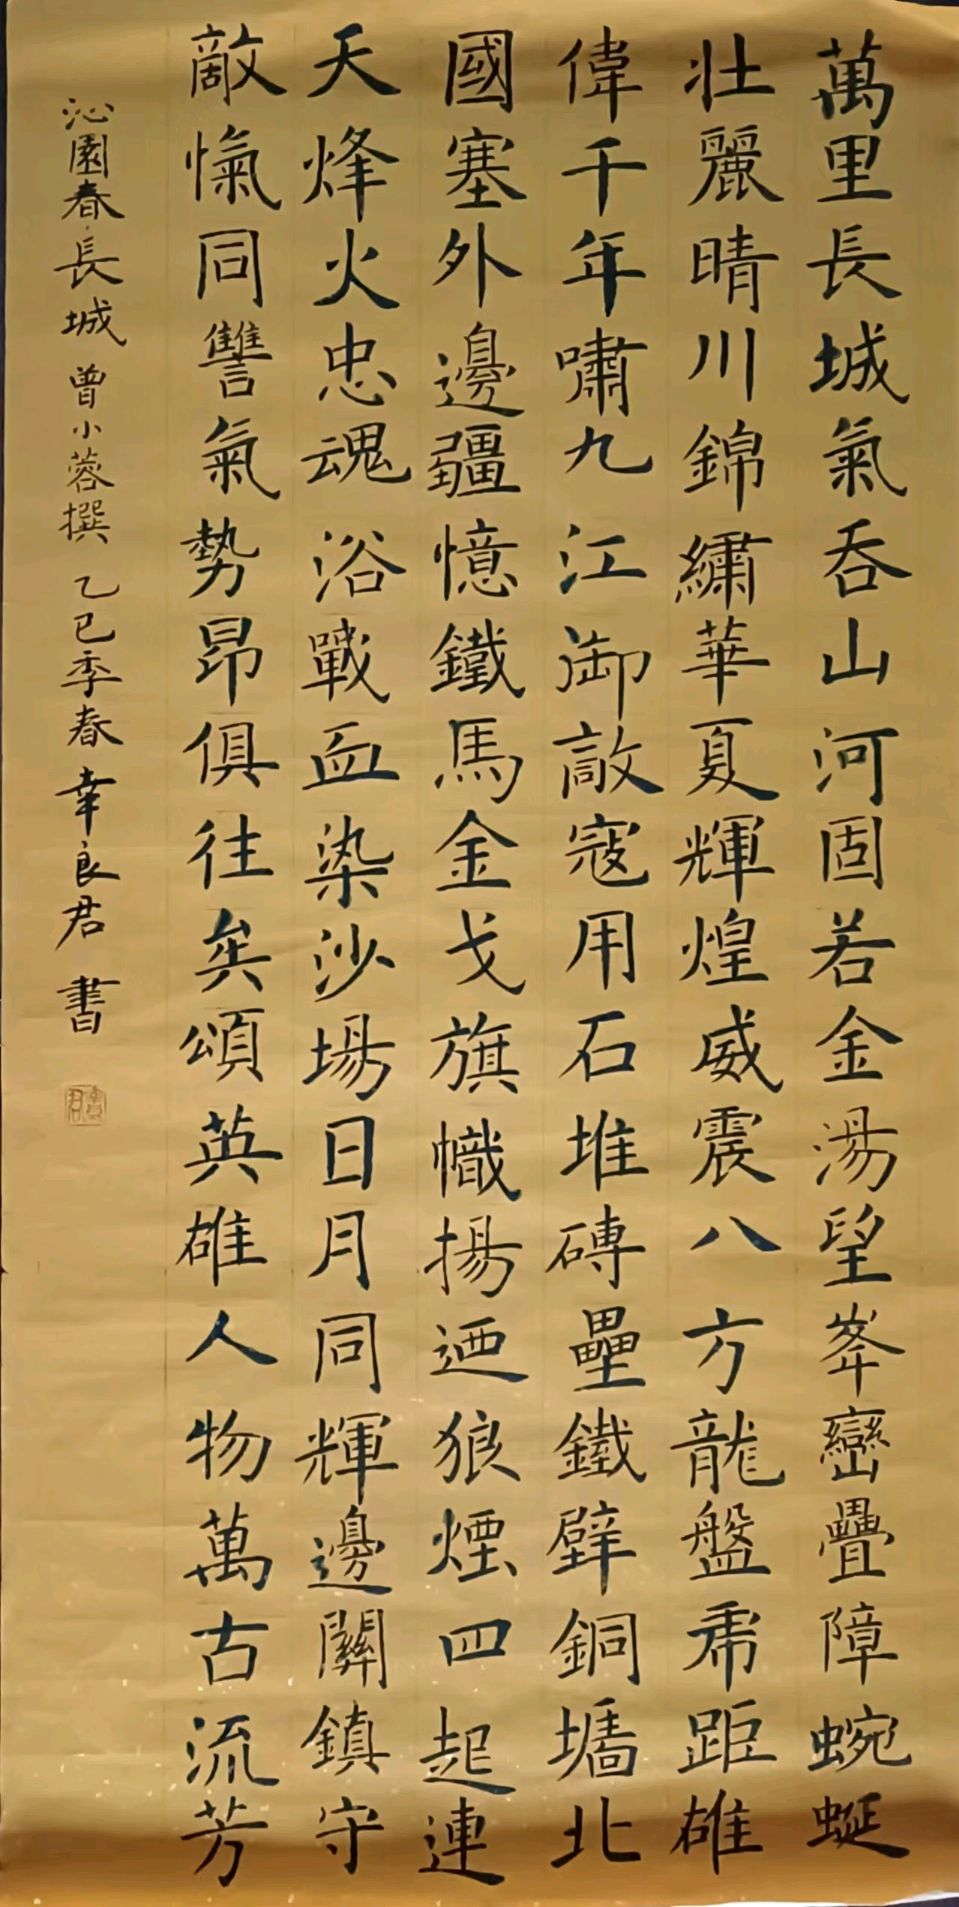 萬里長城氣吞山河固若金湯望峯巒疊障蜿蜒
壯麗晴川錦繡華夏輝煌威震八方龍盤虎距雄
偉千年嘯九江御敵寇用石堆磚壘鐵壁銅墻北
國塞外邊疆憶鐵馬金戈旗幟揚迺狼煙四起連
天烽火忠魂浴戰血染沙場日月同輝邊關鎮守
敵愾同讐氣勢昂俱往矣頌英雄人物萬古流芳
沁園春·長城 曾小蓉撰 乙巳季春 幸良君 書